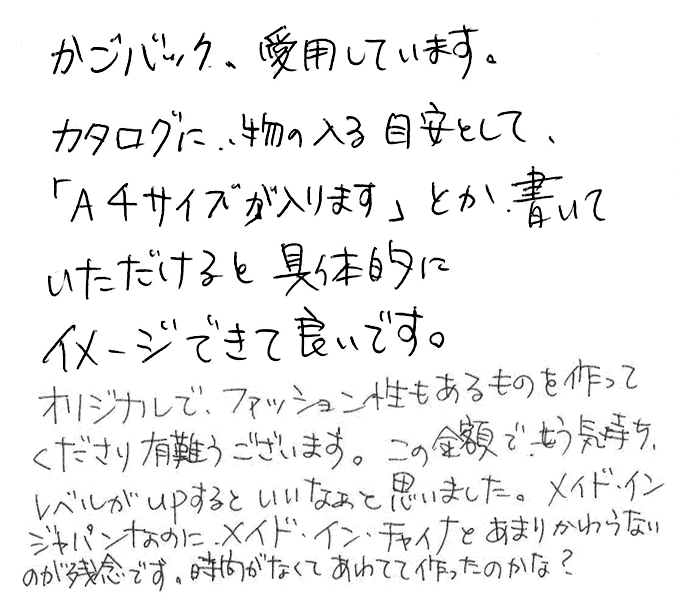 かごバック、愛用しています。
カタログに、物の入る目安として、
「A4サイズが入ります」とか、書いて
いただけると具体的に
イメージできて良いです。
オリジナルで、ファッション性もあるものを作って
くださり有難うございます。この金額で、もう気持ち、
レベルがupするといいなぁと思いました。メイド・イン
ジャパンなのに、メイド・イン・チャイナとあまりかわらない
のが残念です。時間がなくてあわてて作ったのかな?